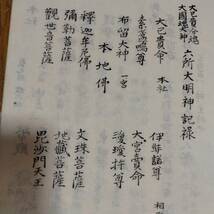 大己貴合魂
大国魂大神
六所大明神記禄
大己貴命 本社
伊弉諾尊 相
素盞嗚尊
大宮貴命
布留大神 一宮
瓊瓊杵尊
本地佛
釋迦牟尼佛
文珠菩薩
彌勒菩薩
地藏菩薩
觀世音菩薩
毘沙門天王